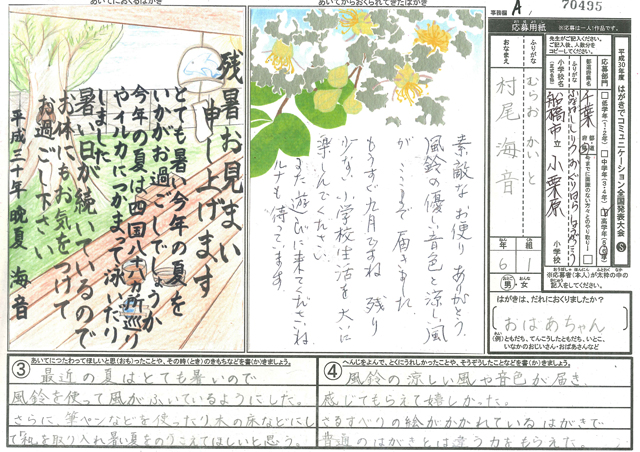 あいてにおくるはがき
あいてからおくられてきたはがき
事務局
A
70495
残暑お見まい
申し上げます
とても暑い今年の夏を
いかがお過ごしでしょうか
今年の夏は四国八十八か所巡り
やイルカにつかまって泳いだり
しました
暑い日が続いているので
お体にもお気をつけて
お過ごし下さい
平成三十年 晩夏 海音
素敵なお便りありがとう。
風鈴の優しい音色と涼し風
が、ここまで届きました
もうすぐ九月ですね 残り
少ない小学校生活を大いに
楽しんでください
また遊びに来てくださいね
ルナも待ってます
応募用紙
※応募は一人1作品です。
平成30年度 はがきでコミュニケーション全国発表大会 S
先生がご記入ください。
ご記入後、人数分を
コピーしてください。
応募部門
低学年(1・2年)
中学年(3・4年)
高学年(5・6年)
都道府県名
千葉
ふりがな
小学校名
(正式名称)
船橋市立 小栗原
小学校
ふりがな
むらお かいと
おなまえ
村尾 海音
年
6
組
1
男・女
※応募者(本人)が太枠の中の
記入をしてください。
はがきは、だれにおくりましたか?
おばあちゃん
(例)ともだち、てんこうしたともだち、いとこ、
いなかのおじいさん・おばあさんなど
③
あいてにつたわってほしいと思(おも)ったことや、その時(とき)のきもちなどを書(か)きましょう。
最近の夏はとても暑いので
風鈴を使って風がふいているようにした。
さらに、筆やペンなどを使ったり木の床などにし
て「和」を取り入れ暑い夏をのりこえてほしいと思う。
④
へんじをよんで、とくにうれしかったことや、そうぞうしたことなどを書(か)きましょう。
風鈴の涼しい風や音色が届き、
感じてもらえて嬉しかった。
さるすべりの絵がかかれているはがきで
普通のはがきとは違う力をもらえた。